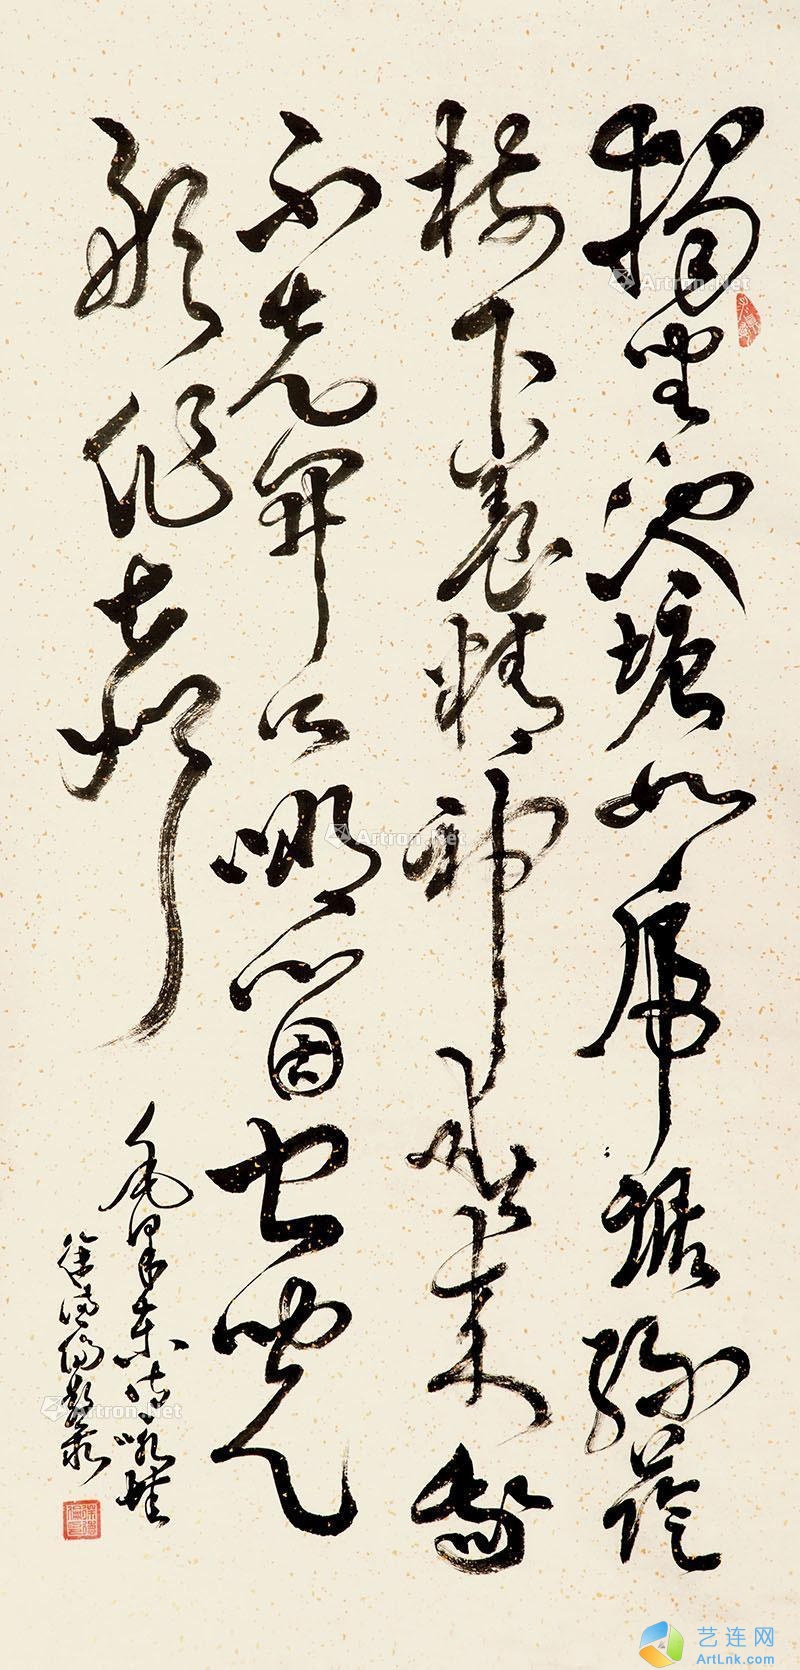 獨坐池塘如虎踞綠蔭
樹下養精神春來我
不先開口哪箇虫兒
敢作聲
毛澤東詩咏蛙
徐
Artron.Net
Artron.Net
Artron.Net
艺连网
ArtLnk.com